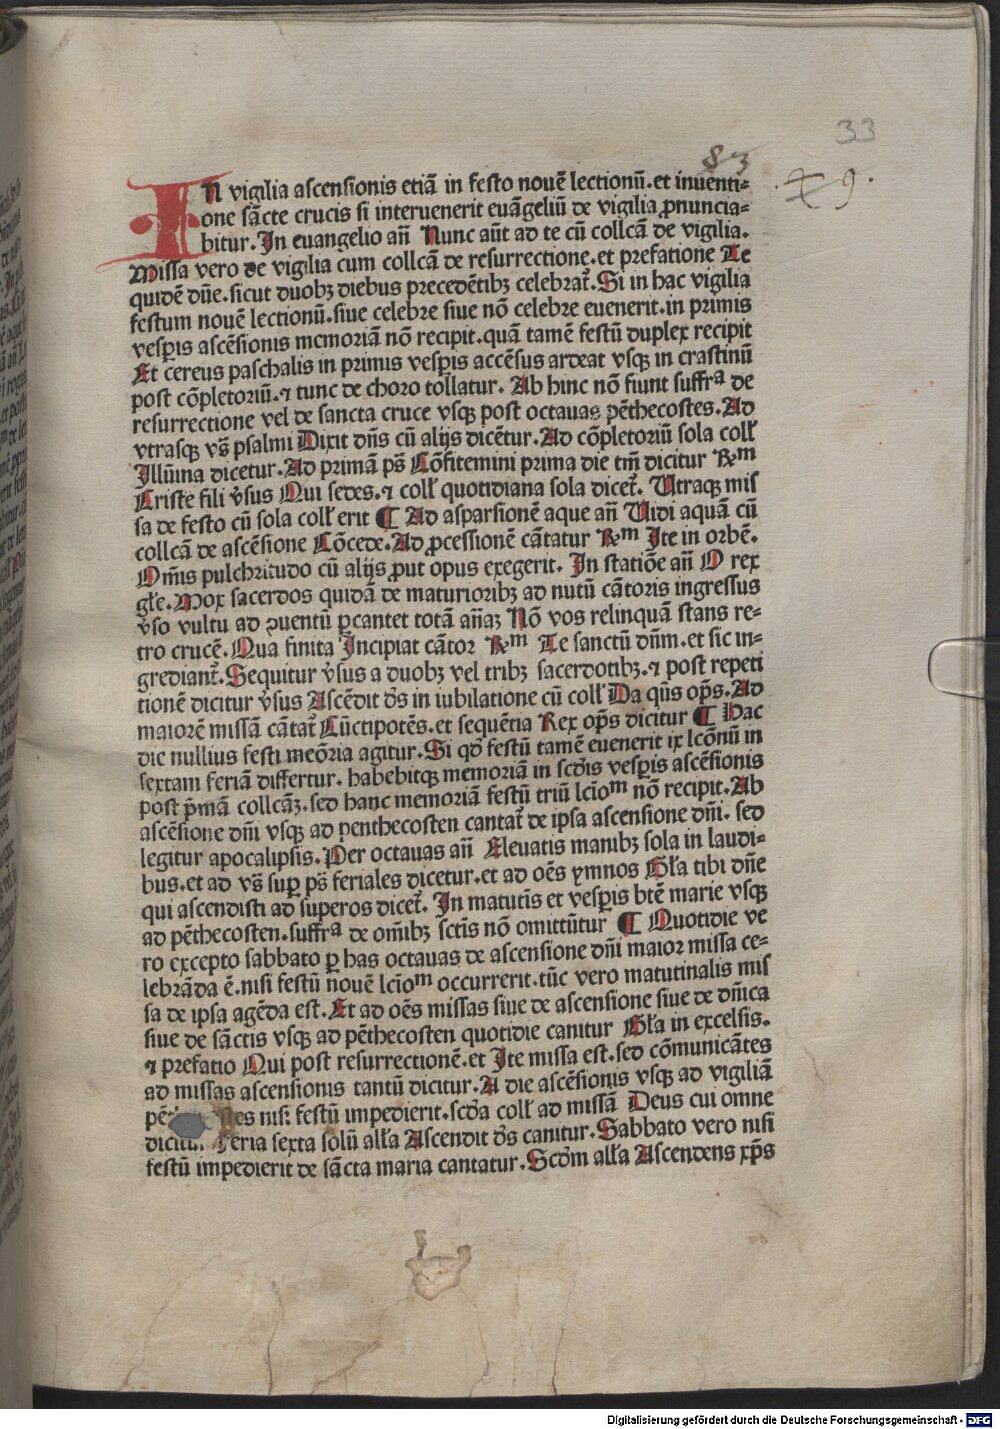 33
83
IN vigilia ascensionis etiā in festo nouē lectionū. et inuenti-
one sācte crucis si interuenerit euāgeliū de vigilia ꝓnuncia-
bitur. In euangelio añ Nunc aūt ad te cū collcā de vigilia.
Missa vero de vigilia cum collcā de resurrectione. et prefatione Te
quidē dñe. sicut duobꝫ diebus precedētibꝫ celebrat᷑. Si in hac vigilia
festum nouē lectionū. siue celebre siue nō celebre euenerit. in primis
vesꝑis ascēsionis memoriā nō recipit. quā tamē festū duplex recipit
Et cereus paschalis in primus vesꝑis accēsus ardeat vsqꝫ in crastinū
post cōpletoriū. ⁊ tunc de choro tollatur. Ab hinc nō fiunt suffrᵃ de
resurrectione vel de sancta cruce vsqꝫ post octauas pēthecostes. Ad
vtrasqꝫ vs̄ psalmi Dixit dñs cū alijs dicētur. Ad cōpletoriū sola coll̄
Illūina dicetur. Ad primā ps̄ Cōfitemini prima die tm̄ dicitur Rᵉm
Criste fili v̄sus Qui sedes. ⁊ coll̄ quotidiana sola dicet᷑. Vtraqꝫ mis
sa de festo cū sola coll̄ erit ¶ Ad asparsionē aque añ Vidi aquā cū
collcā de ascēsione Cōcede. Ad ꝓcessionē cātatur Rᵉm Ite in orbē.
Om̄is pulchritudo cū alijs ꝓut opus exegerit. In statiōe añ O rex
gl̄e. Mox sacerdos quidā de maturioribꝫ ad nutū cātoris ingressus
v̄so vultu ad ꝯuentū ꝑcantet totā añaꝫ Nō vos relinquā stans re-
tro crucē. Qua finita Incipiat cātor Rᵉm Te sanctū dñm. et sic in-
grediant᷑. Sequitur v̄sus a duobꝫ vel tribꝫ sacerdotibꝫ. ⁊ post repeti
tionē dicitur v̄sus Ascēdit ds̄ in iubilatione cū coll̄ Da q̄is op̄s. Ad
maiorē missā cātat᷑ Cūctipotēs. et sequētia Rex op̄s dicitur ¶ Hac
die nullius festi meōria agitur. Si qd̄ festū tamē euenerit ix lcōnū in
sextam feriā differtur. habebitqꝫ memoriā in scd̄is vesꝑis ascēsionis
post p̄mā collcāꝫ. sed hanc memoriā festū triū lcīoᵐ nō recipit. Ab
ascēsione dñi vsqꝫ ad penthecosten cantat᷑ de ipsa ascensione dñi. sed
legitur apocalipsis. Per octauas añ Eleuatis manibꝫ sola in laudi-
bus. et ad vs̄ suꝑ ps̄ feriales dicetur. et ad oēs ymnos Gl̄a tibi dñe
qui ascendisti ad superos dicet᷑. In matutīs et vesꝑis btē marie vsqꝫ
ad pēthecosten. suffrᵃ de om̄ibꝫ sctīs nō omittūtur ¶ Quotidie ve
ro excepto sabbato ꝑ has octauas de ascensione dñi maior missa ce-
lebrāda ē. nisi festū nouē lcīoᵐ occurrerit. tūc vero matutinalis mis
sa de ipsa agēda est. Et ad oēs missas siue de ascensione siue de dñica
siue de sāctis vsqꝫ ad pēthecosten quotidie canitur Gl̄a in excelsis.
⁊ prefatio Qui post resurrectionē. et Ite missa est. sed cōmunicātes
ad missas ascensionis tantū dicitur. A die ascēsionis vsqꝫ ad vigiliā
nisi festū impedierit. scd̄a coll̄ ad missā Deus cui omne
Feria sexta solū all̄a Ascendit ds̄ canitur. Sabbato vero nisi
festū impedierit de sācta maria cantatur. Scd̄m all̄a Ascendens xp̄s
Digitalisierung gefördert durch die Deutsche Forschungsgemeinschaft - DFG